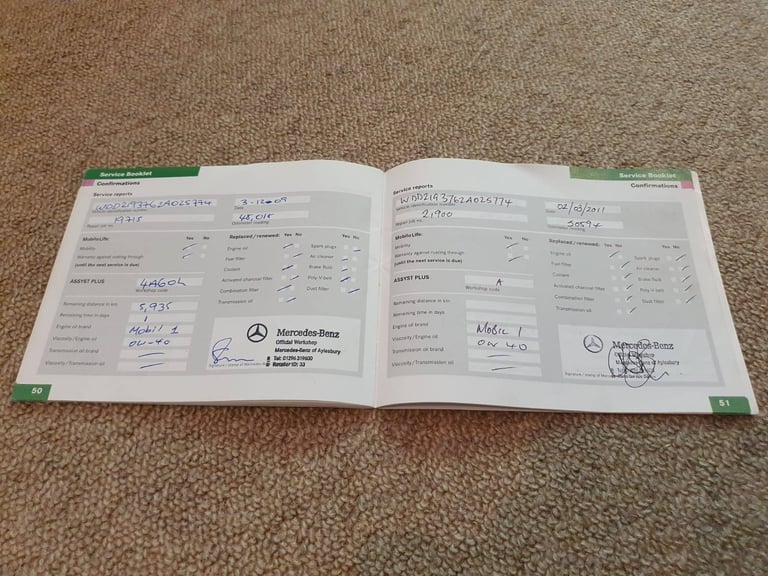 Service Booklet
Confirmations
Service reports
WDD2193762A025774
Vehicle identification number
3-12-09
Date
19715
Repair job no.
48,015
Odometer reading
MobiloLife: Yes No
Mobility
Warranty against rusting through
(until the next service is due)
Replaced/renewed: Yes No Yes No
Engine oil Spark plugs
Fuel filter Air cleaner
Coolant Brake fluid
Activated charcoal filter Poly-V-belt
Combination filter Dust filter
Transmission oil
ASSYST PLUS
4A60h
Workshop code
Remaining distance in km 5,935
Remaining time in days
Engine oil brand Mobil 1
Viscosity/Engine oil 0W-40
Transmission oil brand
Viscosity/Transmission oil
Mercedes-Benz
Official Workshop
Mercedes-Benz of Aylesbury
Tel: 01296 319600
Retailer ID: 33
Signature / stamp of Mercedes-
50
Service Booklet
Confirmations
Service reports
WDD2193762A025774
Vehicle identification number
02/03/2011
Date
21,900
Repair job no.
Odometer reading
MobiloLife: Yes No
Mobility
Warranty against rusting through
(until the next service is due)
Replaced/renewed: Yes No Yes No
Engine oil Spark plugs
Fuel filter Air cleaner
Coolant Brake fluid
Activated charcoal filter Poly-V-belt
Combination filter Dust filter
Transmission oil
ASSYST PLUS
A
Workshop code
Remaining distance in km
Remaining time in days
Engine oil brand Mobil 1
Viscosity/Engine oil 0W 40
Transmission oil brand
Viscosity/Transmission oil
Mercedes-Benz
Official Workshop
Mercedes-Benz of Aylesbury
Signature / stamp of Mercedes-
51